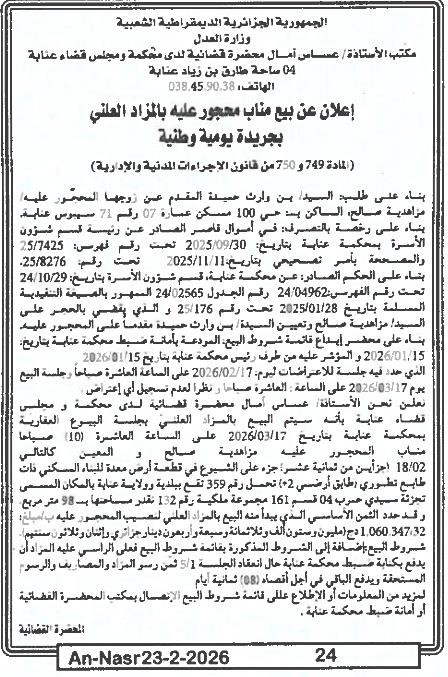 الجمهورية الجزائرية الديمقراطية الشعبية
وزارة العدل
مكتب الأستاذة/ عساس أمال محضرة قضائية لدى محكمة ومجلس قضاء عنابة
04 ساحة طارق بن زياد عنابة
الهاتف: 038.45.90.38
إعلان عن بيع مناب محجور عليه بالمزاد العلني
بجريدة يومية وطنية
(المادة 749 و 750 من قانون الإجراءات المدنية والإدارية)
بناء على طلب: السيد/ بن وارث حميدة المقدم عن زوجها المحجور عليه/
مزاهدية صالح، الساكن بـ: حي 100 مسكن عمارة 07 رقم 71 سيبوس عنابة.
بناء على رخصة بالتصرف: في أموال قاصر الصادر عن رئيسة قسم شؤون
الأسرة بمحكمة عنابة بتاريخ: 2025/09/30 تحت رقم فهرس: 25/7425
والمصححة بأمر تصحيحي بتاريخ: 2025/11/11 تحت رقم: 25/8276.
بناء على الحكم الصادر: عن محكمة عنابة، قسم شؤون الأسرة بتاريخ: 24/10/29
تحت رقم الفهرس: 24/04962 رقم الجدول 24/02565 الممهور بالصيغة التنفيذية
المسلمة بتاريخ 2025/01/28 تحت رقم 25/176 و الذي يقضي بالحجر على
السيد/ مزاهدية صالح وتعيين السيدة/ بن وارث حميدة مقدما على المحجور عليه.
بناء على محضر إيداع قائمة شروط البيع: المودعة بأمانة ضبط محكمة عنابة بتاريخ:
2026/01/15 و المؤشر عليه من طرف رئيس محكمة عنابة بتاريخ 2026/01/15
الذي حدد فيه جلسة للاعتراضات ليوم: 2026/02/17 على الساعة العاشرة صباحا وجلسة البيع
يوم 2026/03/17 على الساعة: العاشرة صباحا و نظرا لعدم تسجيل أي إعتراض.
نعلن نحن الأستاذة/ عساس أمال محضرة قضائية لدى محكمة و مجلس
قضاء عنابة بأنه سيتم البيع بالمزاد العلني بجلسة البيوع العقارية
بمحكمة عنابة بتاريخ 2026/03/17 على الساعة العاشرة (10) صباحا
مناب المحجور عليه مزاهدية صالح و المعين كالتالي
18/02 (جزأين من ثمانية عشر) جزء على الشيوع في قطعة أرض معدة للبناء السكني ذات
طابع تطوري (طابق أرضي +2) تحمل رقم 359 تقع ببلدية وولاية عنابة بالمكان المسمى
تجزئة سيدي حمرب 04 قسم 161 مجموعة ملكية رقم 132 تقدر مساحتها بـ 98 متر مربع.
و قد حدد الثمن الأساسي الذي يبدأ منه البيع بالمزاد العلني لنصيب المحجور عليه بـ/مبلغ:
1.060.347,32 دج (مليون وستون ألف وثلاثمائة وسبعة وأربعون دينار جزائري وإثنان وثلاثون سنتيم).
شروط البيع: إضافة إلى الشروط المذكورة بقائمة شروط البيع فعلى الراسي عليه المزاد أن
يدفع بكتابة ضبط محكمة عنابة حال انعقاد الجلسة 1/5 ثمن رسو المزاد والمصاريف والرسوم
المستحقة ويدفع الباقي في أجل أقصاه (08) ثمانية أيام
لمزيد من المعلومات أو الإطلاع على قائمة شروط البيع الإتصال بمكتب المحضرة القضائية
أو أمانة ضبط محكمة عنابة.
المحضرة القضائية
An-Nasr23-2-2026 24